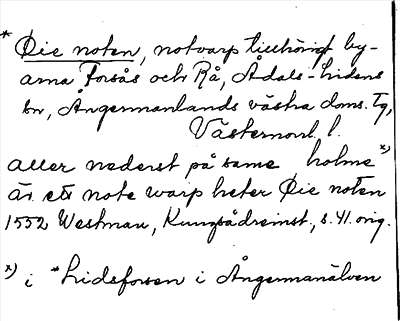 * Öie noten, notvarp tillhörigt by-
arna Forsås och Rå, Ådals-Lidens
sn, Ångermanlands västra doms. Tg,
Västernorrl. l.
aller nederst på same holme x)
är ett note warp heter Öie noten
1552 Westman, Kungsådreinst., s. 41. orig.
x) i *Lidsforsen i Ångermanälven